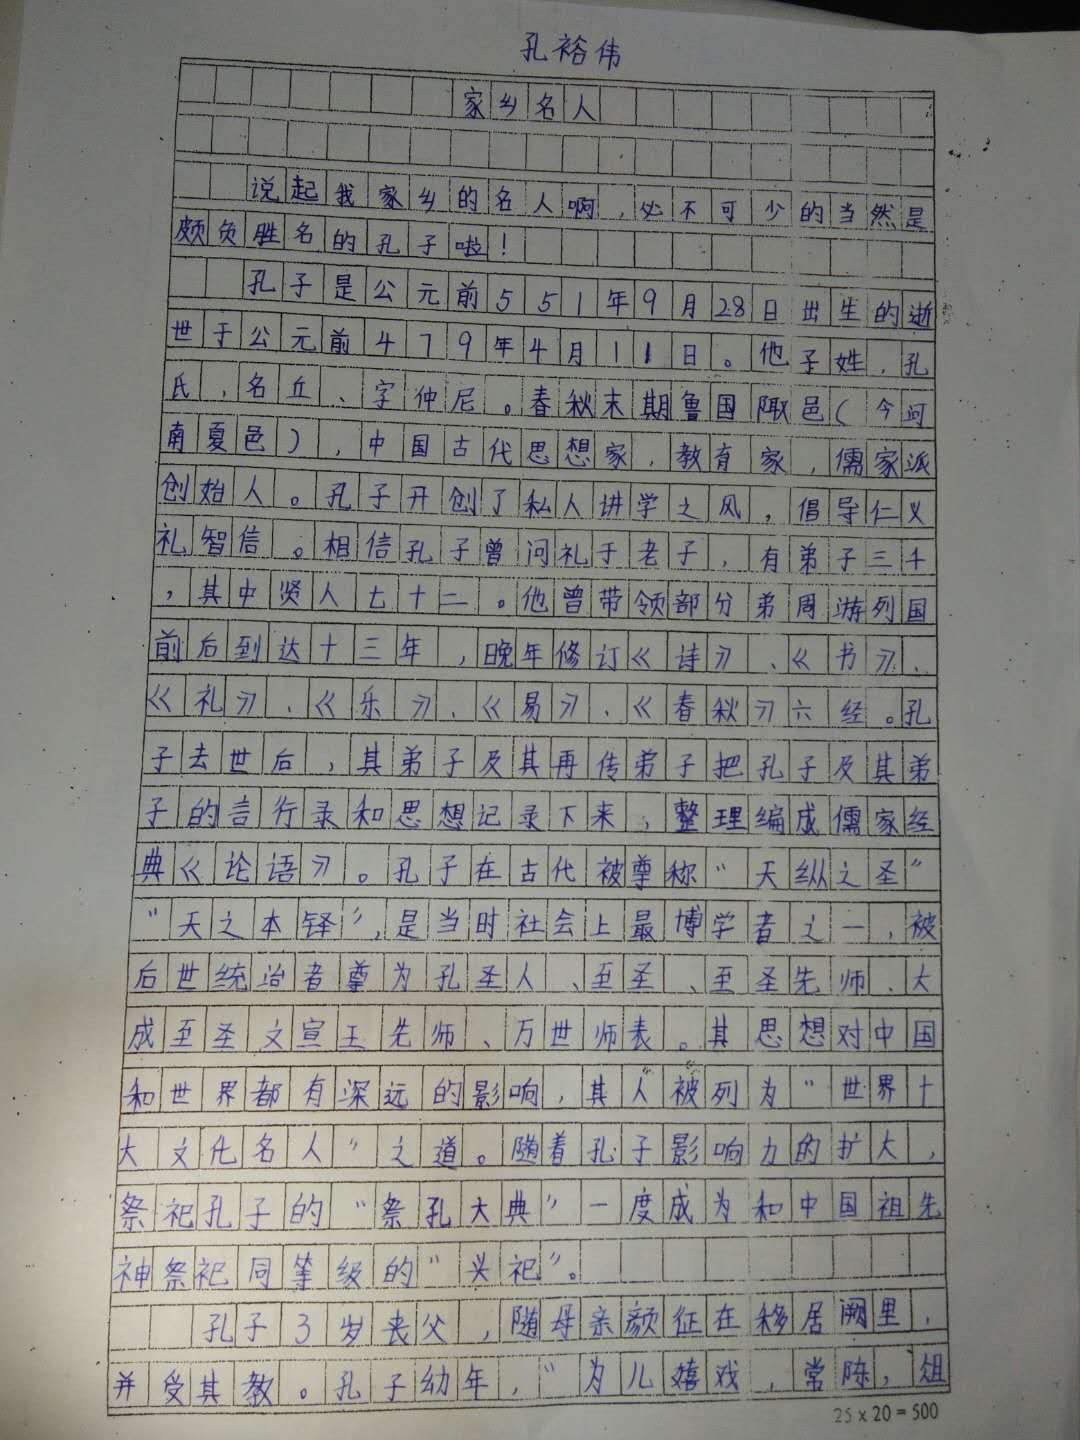 孔裕伟
家乡名人
说起我家乡的名人啊，必不可少的当然是
颇负胜名的孔子啦！
孔子是公元前551年9月28日出生的逝
世于公元前479年4月11日。他子姓，孔
氏，名丘、字仲尼。春秋末期鲁国陬邑（今河
南夏邑），中国古代思想家，教育家，儒家派
创始人。孔子开创了私人讲学之风，倡导仁义
礼智信。相信孔子曾问礼于老子，有弟子三千
，其中贤人七十二。他曾带领部分弟周游列国
前后到达十三年，晚年修订《诗》、《书》、
《礼》、《乐》、《易》、《春秋》六经。孔
子去世后，其弟子及其再传弟子把孔子及其弟
子的言行录和思想记录下来，整理编成儒家经
典《论语》。孔子在古代被尊称“天纵之圣”
“天之本铎”，是当时社会上最博学者之一，被
后世统治者尊为孔圣人、至圣、至圣先师、大
成至圣文宣王先师、万世师表。其思想对中国
和世界都有深远的影响，其人被列为“世界十
大文化名人”之道。随着孔子影响力的扩大，
祭祀孔子的“祭孔大典”一度成为和中国祖先
神祭祀同等级的“头祀”。
孔子3岁丧父，随母亲颜征在移居阙里，
并受其教。孔子幼年，“为儿嬉戏，常陈，俎
25x20=500